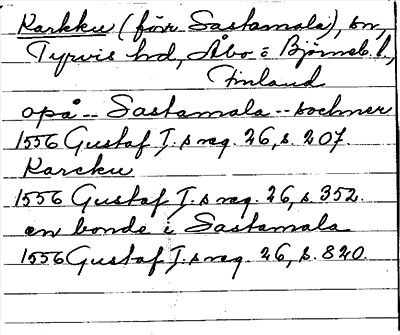 Karkku (förr Sastamala), sn,
Tyrvis hd, Åbo o Björneb. l.,
Finland
opå -- Sastamala -- sochner
1556 Gustaf I.s reg. 26, s. 207.
Karcku
1556 Gustaf I.s reg. 26, s. 352.
en bonde i Sastamala
1556 Gustaf I.s reg. 26, s. 820.